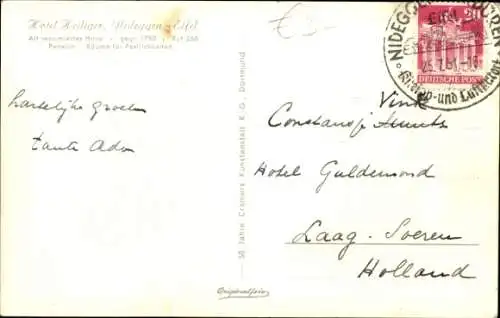 Hotel Heiliger, Nideggen-Eifel
Altrenommiertes Haus - gegr. 1783 - Ruf 258
Pension - Räume für Festlichkeiten
hartelijke groeten
tante Ada
50 Jahre Cramers Kunstanstalt K. G., Dortmund
Originalfoto
NIDEGGEN
Eifel
20
DEUTSCHE POST
Kneipp- und Luftkurort
Vink
Constansje
Hotel Guldemond
Laag-Soeren
Holland